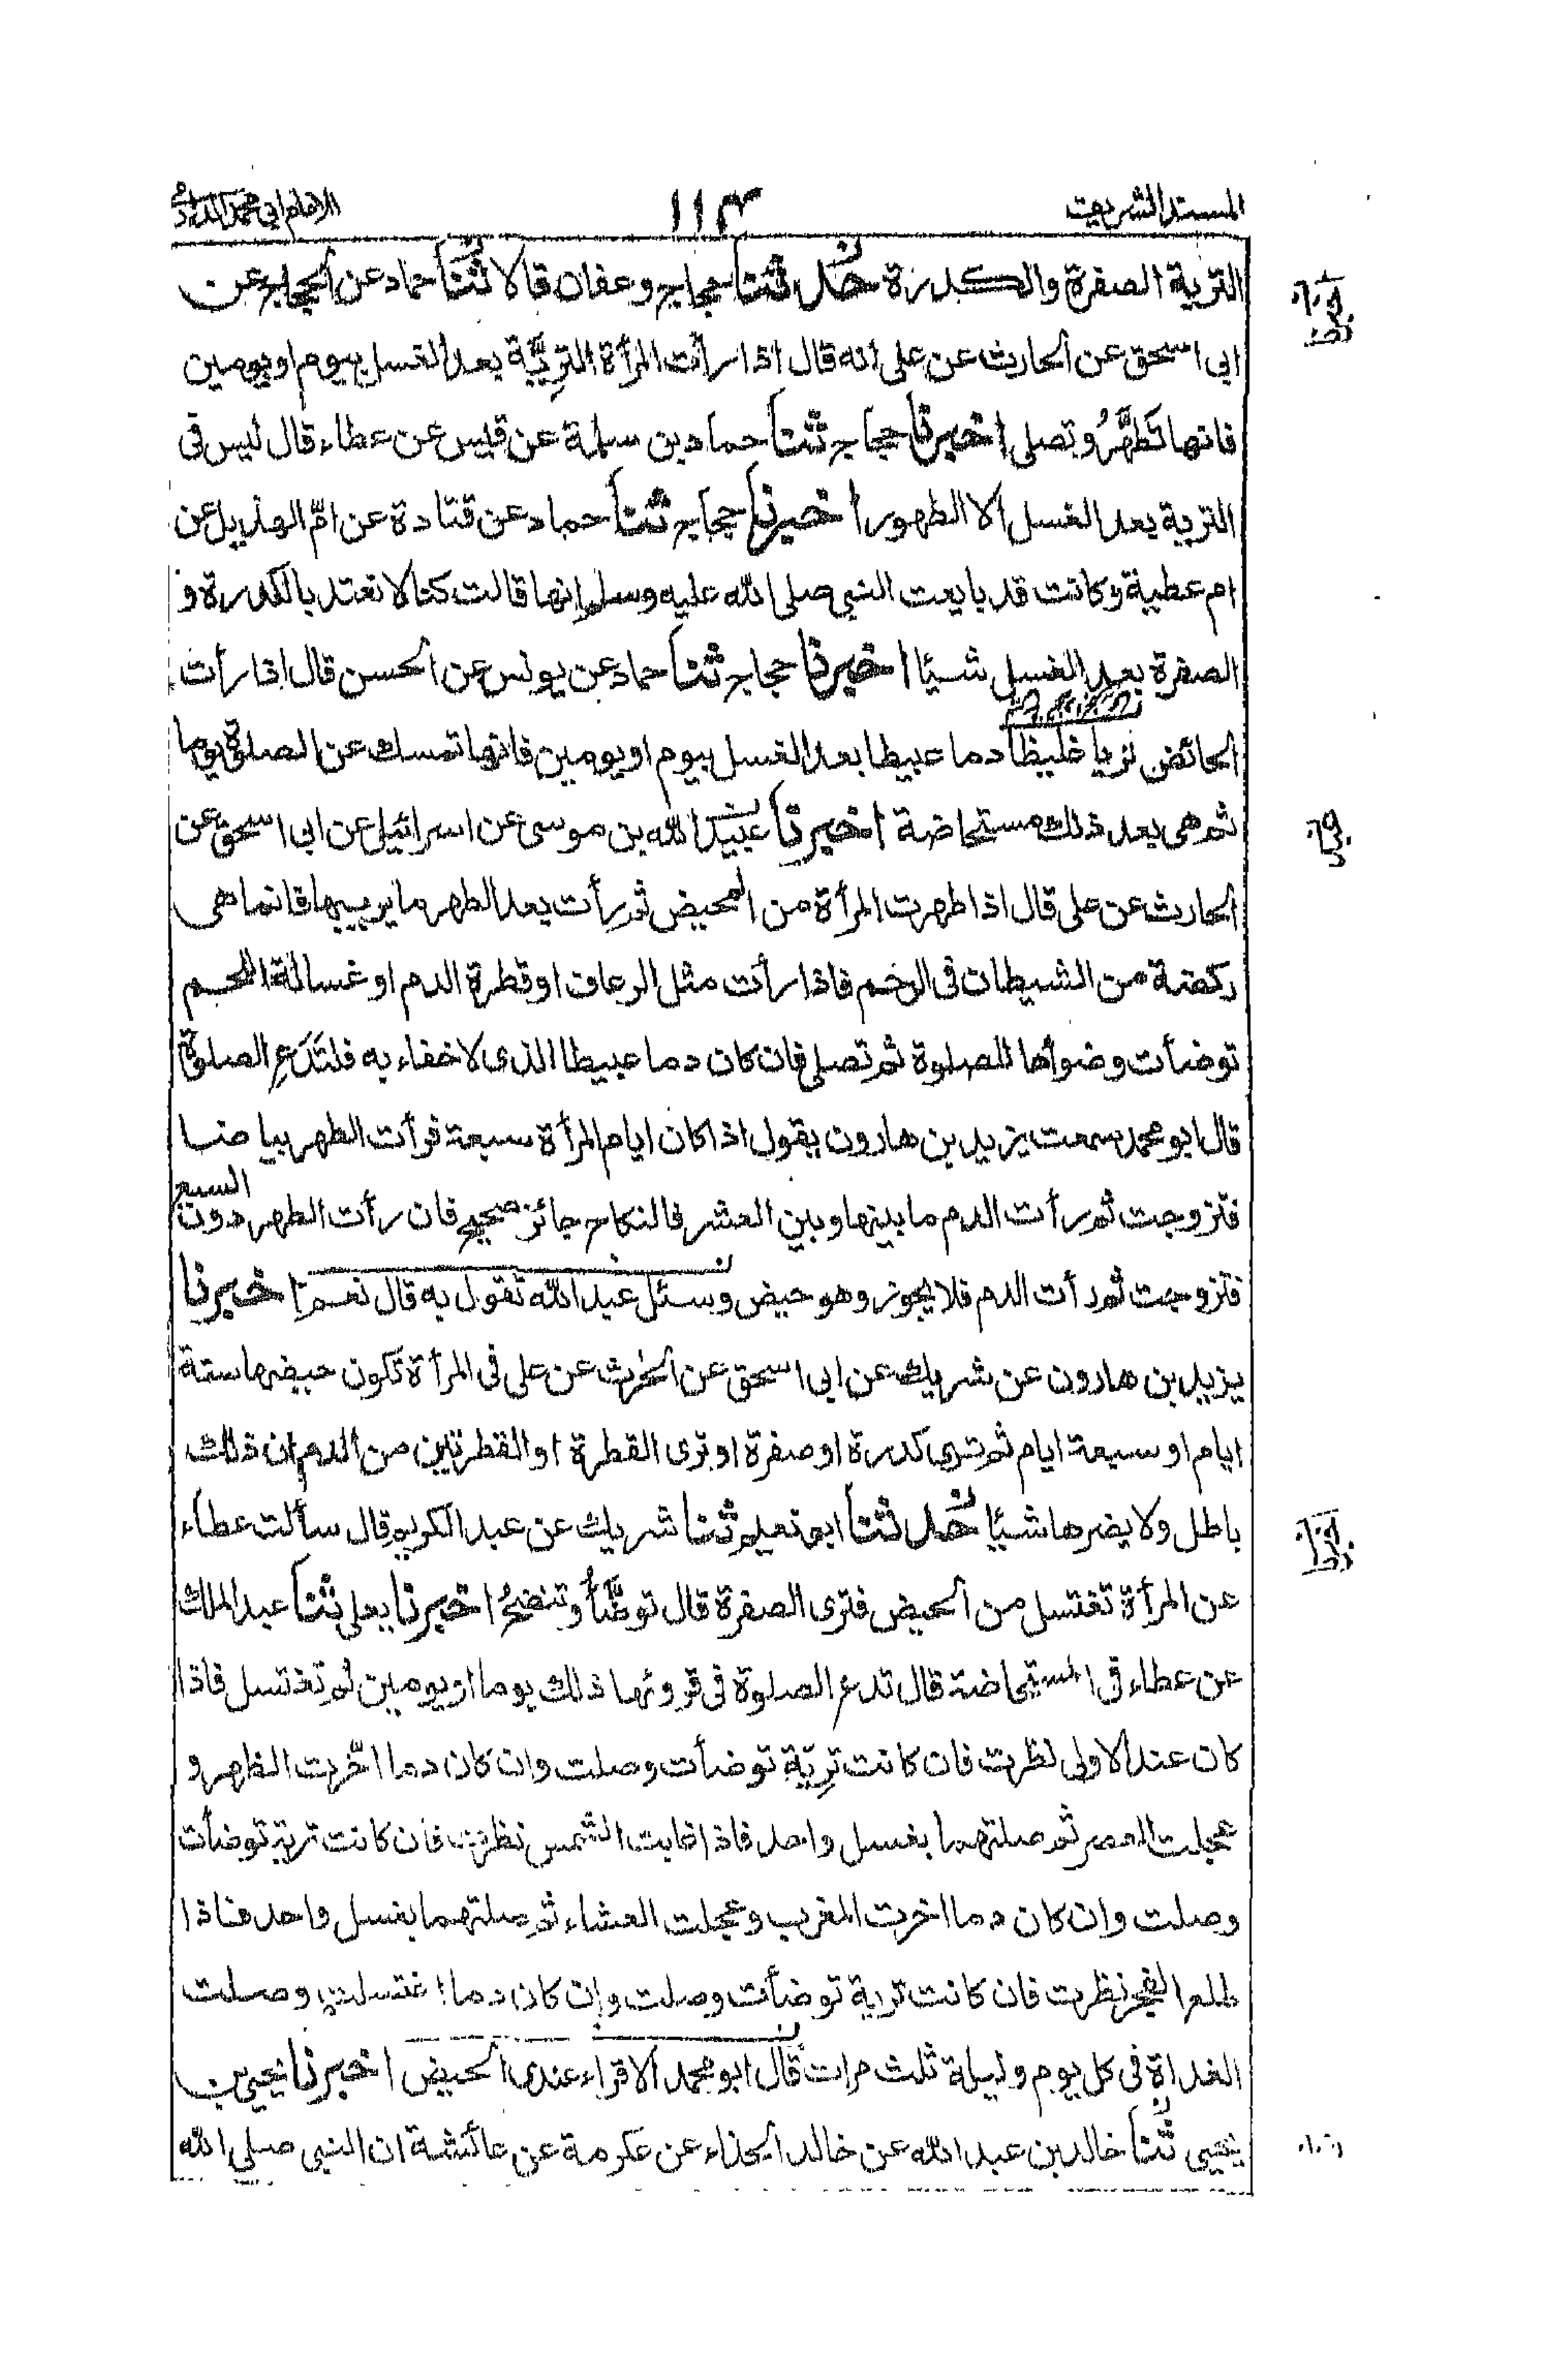 المسند الشريف ١١٣ الامام ابي محمد الدارمي
التربة الصفرة والكدرة حدثنا حجاج وعفان قالا ثنا حماد عن الحجاج عن
ابى اسحق عن الحارث عن على انه قال اذا رأت المرأة التَرِيَّة بعد الغسل بيوم او يومين
فانها تَطَهَّرُ وتصلى اخبرنا حجاج ثنا حماد بن سلمة عن قيس عن عطاء قال ليس فى
التربة بعد الغسل الا الطهور اخبرنا حجاج ثنا حماد عن قتادة عن امّ الهذيل عن
ام عطية وكانت قد بايعت النبى صلى الله عليه وسلم انها قالت كنا لا نعتد بالكدرة و
الصفرة بعد الغسل شيئا اخبرنا حجاج ثنا حماد عن يونس عن الحسن قال اذا رأت
الحائض تريا غليظا دما عبيطا بعد الغسل بيوم او يومين فانها تمسك عن الصلوة يوما
ثم هى بعد ذلك مستحاضة اخبرنا عبيد الله بن موسى عن اسرائيل عن ابى اسحق عن
الحارث عن على قال اذا طهرت المرأة من المحيض ثم رأت بعد الطهر ما يريبها فانما هى
ركضة من الشيطان فى الرحم فاذا رأت مثل الرعاف او قطرة الدم او غسالة اللحم
توضأت وضوأها للصلوة ثم تصلى فان كان دما عبيطا الذى لا خفاء به فلتَدَعِ الصلوة
قال ابو محمد سمعت يزيد بن هارون يقول اذا كان ايام المرأة سبعة فرأت الطهر بياضا
فتزوجت ثم رأت الدم ما بينها وبين العشر فالنكاح جائز صحيح فان رأت الطهر دون السبع
فتزوجت ثم رأت الدم فلا يجوز وهو حيض وسئل عبد الله تقول به قال نعم اخبرنا
يزيد بن هارون عن شريك عن ابى اسحق عن الحرث عن على فى المرأة تكون حيضها ستة
ايام او سبعة ايام ثم ترى كدرة او صفرة او ترى القطرة او القطرتين من الدم ان ذلك
باطل ولا يضرها شيئا حدثنا ابو نعيم ثنا شريك عن عبد الكريم قال سألت عطاء
عن المرأة تغتسل من الحيض فترى الصفرة قال توضّأُ وتنضحُ اخبرنا يعلى ثنا عبد الملك
عن عطاء فى المستحاضة قال تدع الصلوة فى قروئها ذلك يوما او يومين ثم تغتسل فاذا
كان عند الاولى نظرت فان كانت تَرِيّة توضأت وصلت وان كان دما اخّرت الظهر و
عجلت العصر ثم صلتهما بغسل واحد فاذا غابت الشمس نظرت فان كانت ترية توضأت
وصلت وان كان دما اخرت المغرب وعجلت العشاء ثم صلتهما بغسل واحد فاذا
طلع الفجر نظرت فان كانت ترية توضأت وصلت وان كان دما اغتسلت وصلت
الغداة فى كل يوم وليلة ثلث مرات قال ابو محمد الاقراء عندى الحيض اخبرنا يحيى بن
يحيى ثنا خالد بن عبد الله عن خالد الحذاء عن عكرمة عن عائشة ان النبى صلى الله